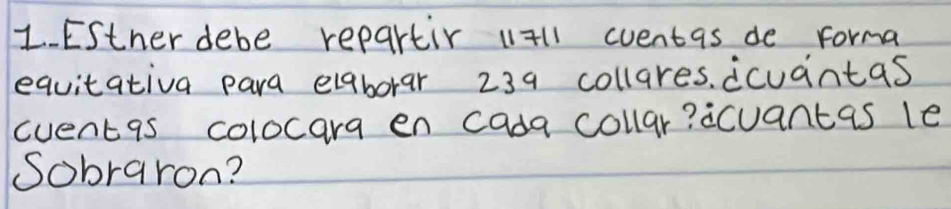 1.-Esther debe repartir 11711 cuentas de forma
equitativa para elaborar 239 collares.¿cuántas
cuentas colocara en cada collar?¿cuantas le
Sobraron?